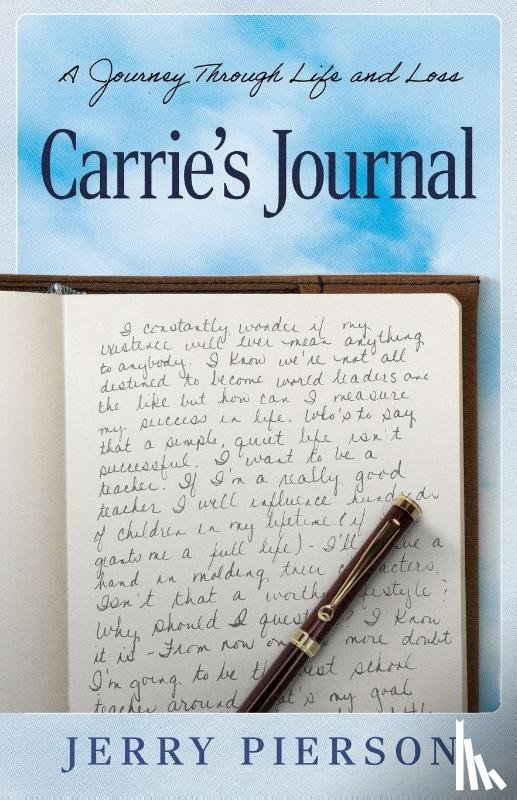 A Journey Through Life and Loss
Carrie's Journal
I constantly wonder if my
existence will ever mean anything
to anybody. I know we're not all
destined to become world leaders and
the like but how can I measure
my success in life. Who's to say
that a simple, quiet life isn't
successful. I want to be a
teacher. If I'm a really good
teacher I will influence hundreds
of children in my lifetime (if
grants me a full life) - I'll a
hand in molding their
Isn't that a
Why should I I know
it is - From now on more doubt
I'm going to be school
teacher around my goal
JERRY PIERSON